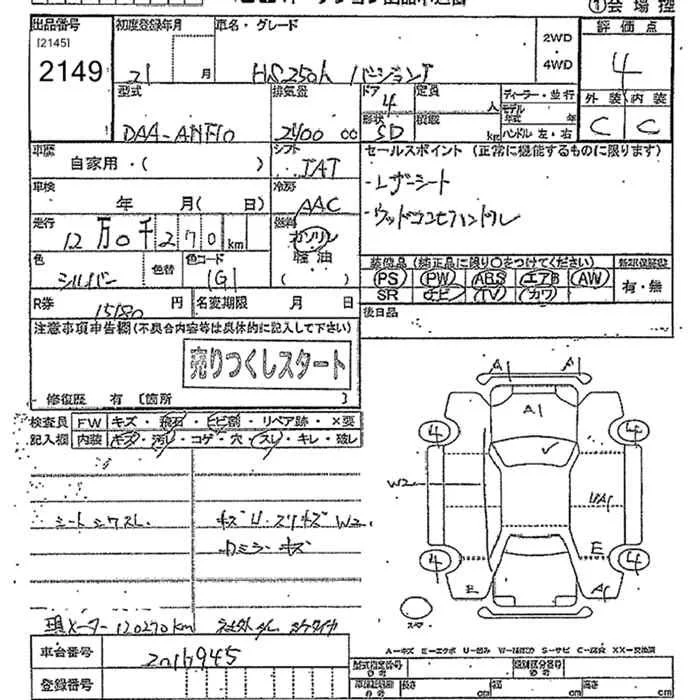 ①会場控
出品番号 初度登録年月 車名・グレード 評価点
[2145]
2149
21 月 HS250h バージョンI
2WD
・
4WD
4
型式 排気量 ドア 定員 ディーラー・並行 外装 内装
4 人 モデル年式 年
DAA-ANF10 2400 cc 形状 積載
5D kg ハンドル 左・右
C C
車歴 シフト セールスポイント (正常に機能するものに限ります)
自家用・( )
IAT ・レザーシート
車検 冷房
年 月( 日)
AAC ・ウッドコンビハンドル
走行 燃料
12万0千270km
ガソリン
軽油
( )
色 色替 色コード
シルバー 1G1
装備品 (純正品に限り〇をつけてください) 新車保証書
PS PW ABS エアB AW 有・無
SR ナビ TV カワ
R券 15180 円 名変期限 月 日
後日品
注意事項申告欄(不具合内容等は具体的に記入して下さい)
売りつくしスタート
・修復歴 有 [箇所 ]
検査員 FW キズ・飛石・ヒビ割・リペア跡・×要
記入欄 内装 キズ・汚れ・コゲ・穴・スレ・キレ・破レ
A1 A1
A1
4 4
W2
UA1
シートシワスレ キズU・スリキズW2
Rミラーキズ
E
4 4
E A1
スペ
現メーター120270km 社外
A-キズ E-エクボ U-凹み W-補修跡 S-サビ C-腐食 XX-交換済
車台番号 2016945
型式指定番号 類別区分番号
登録番号
長さ cm 幅 cm 高さ cm